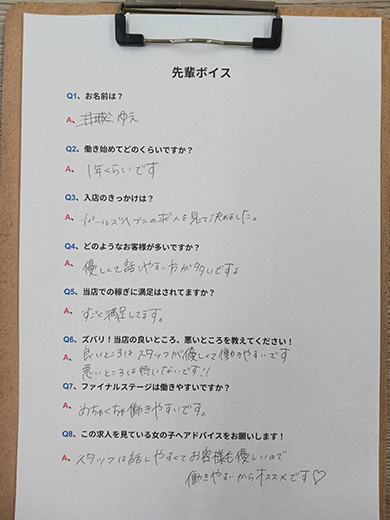 先輩ボイス
Q1、お名前は？
A、井城 ゆえ
Q2、働き始めてどのくらいですか？
A、1年くらいです
Q3、入店のきっかけは？
A、ガールズヘブンの求人を見て決めました。
Q4、どのようなお客様が多いですか？
A、優しくて話しやすい方が多いですよ
Q5、当店での稼ぎに満足はされてますか？
A、すごく満足してます。
Q6、ズバリ！当店の良いところ、悪いところを教えてください！
A、良いところはスタッフが優しくて働きやすいです
悪いところは特にないです!!
Q7、ファイナルステージは働きやすいですか？
A、めちゃくちゃ働きやすいです。
Q8、この求人を見ている女の子へアドバイスをお願いします！
A、スタッフは話しやすくてお客様も優しいので
働きやすいからオススメです♡